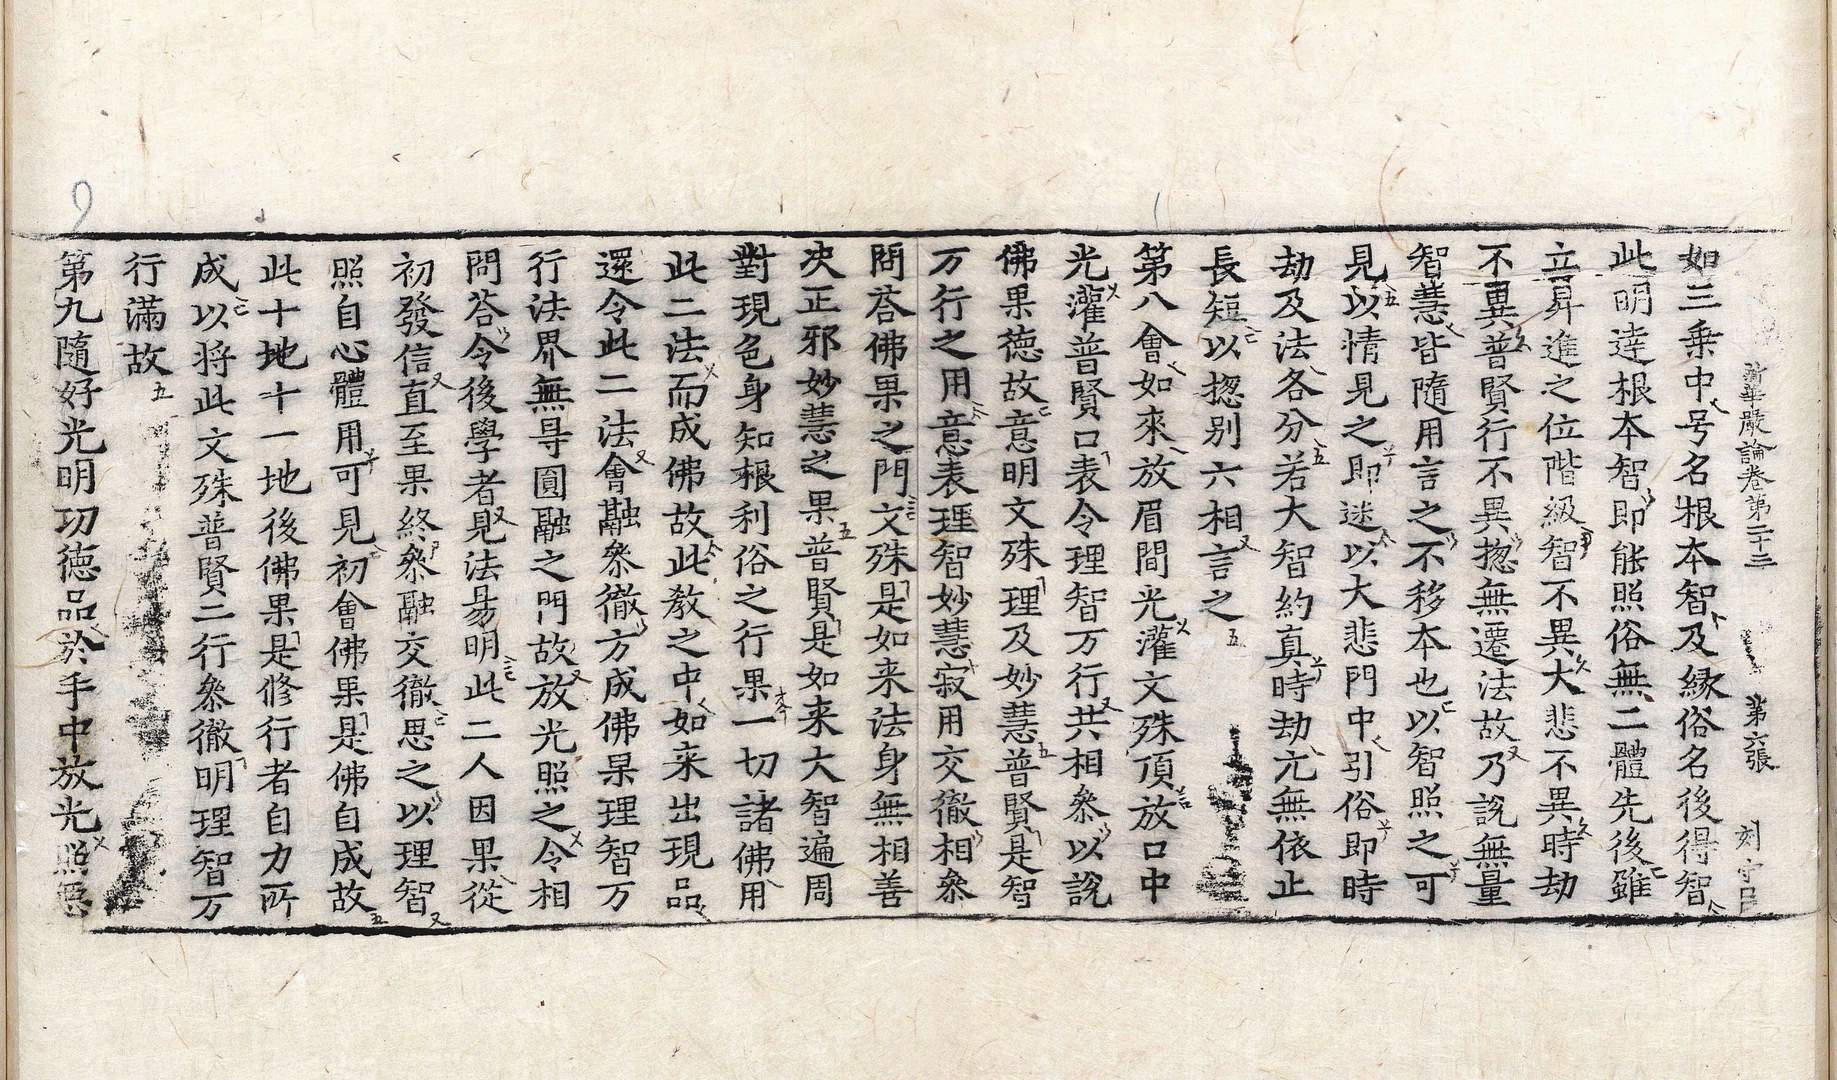 新華嚴論卷第二十三 第六張 刻守
如三乗中号名根本智及縁俗名後得智
此明逹根本智即能照俗無二體先後雖
立昇進之位階級智不異大悲不異時劫
不異普賢行不異揔無遷法故乃說無量
智慧皆隨用言之不移本也以智照之可
見以情見之即迷以大悲門中引俗即時
劫及法各分若大智約真時劫亢無依止
長短以揔別六相言之
第八會如來放眉間光灌文殊頂放口中
光灌普賢口表令理智万行共相叅以說
佛果徳故意明文殊理及妙慧普賢是智
万行之用意表理智妙慧寂用交徹相叅
問荅佛果之門文殊是如来法身無相善
决正邪妙慧之果普賢是如来大智遍周
對現色身知根利俗之行果一切諸佛用
此二法而成佛故此教之中如来出現品
還令此二法會融叅徹方成佛果理智万
行法界無㝵圓融之門故放光照之令相
問荅令後學者見法易明此二人因果從
初發信直至果終叅融交徹思之以理智
照自心體用可見初會佛果是佛自成故
此十地十一地後佛果是修行者自力所
成以将此文殊普賢二行叅徹明理智万
行滿故
第九隨好光明功徳品於手中放光照